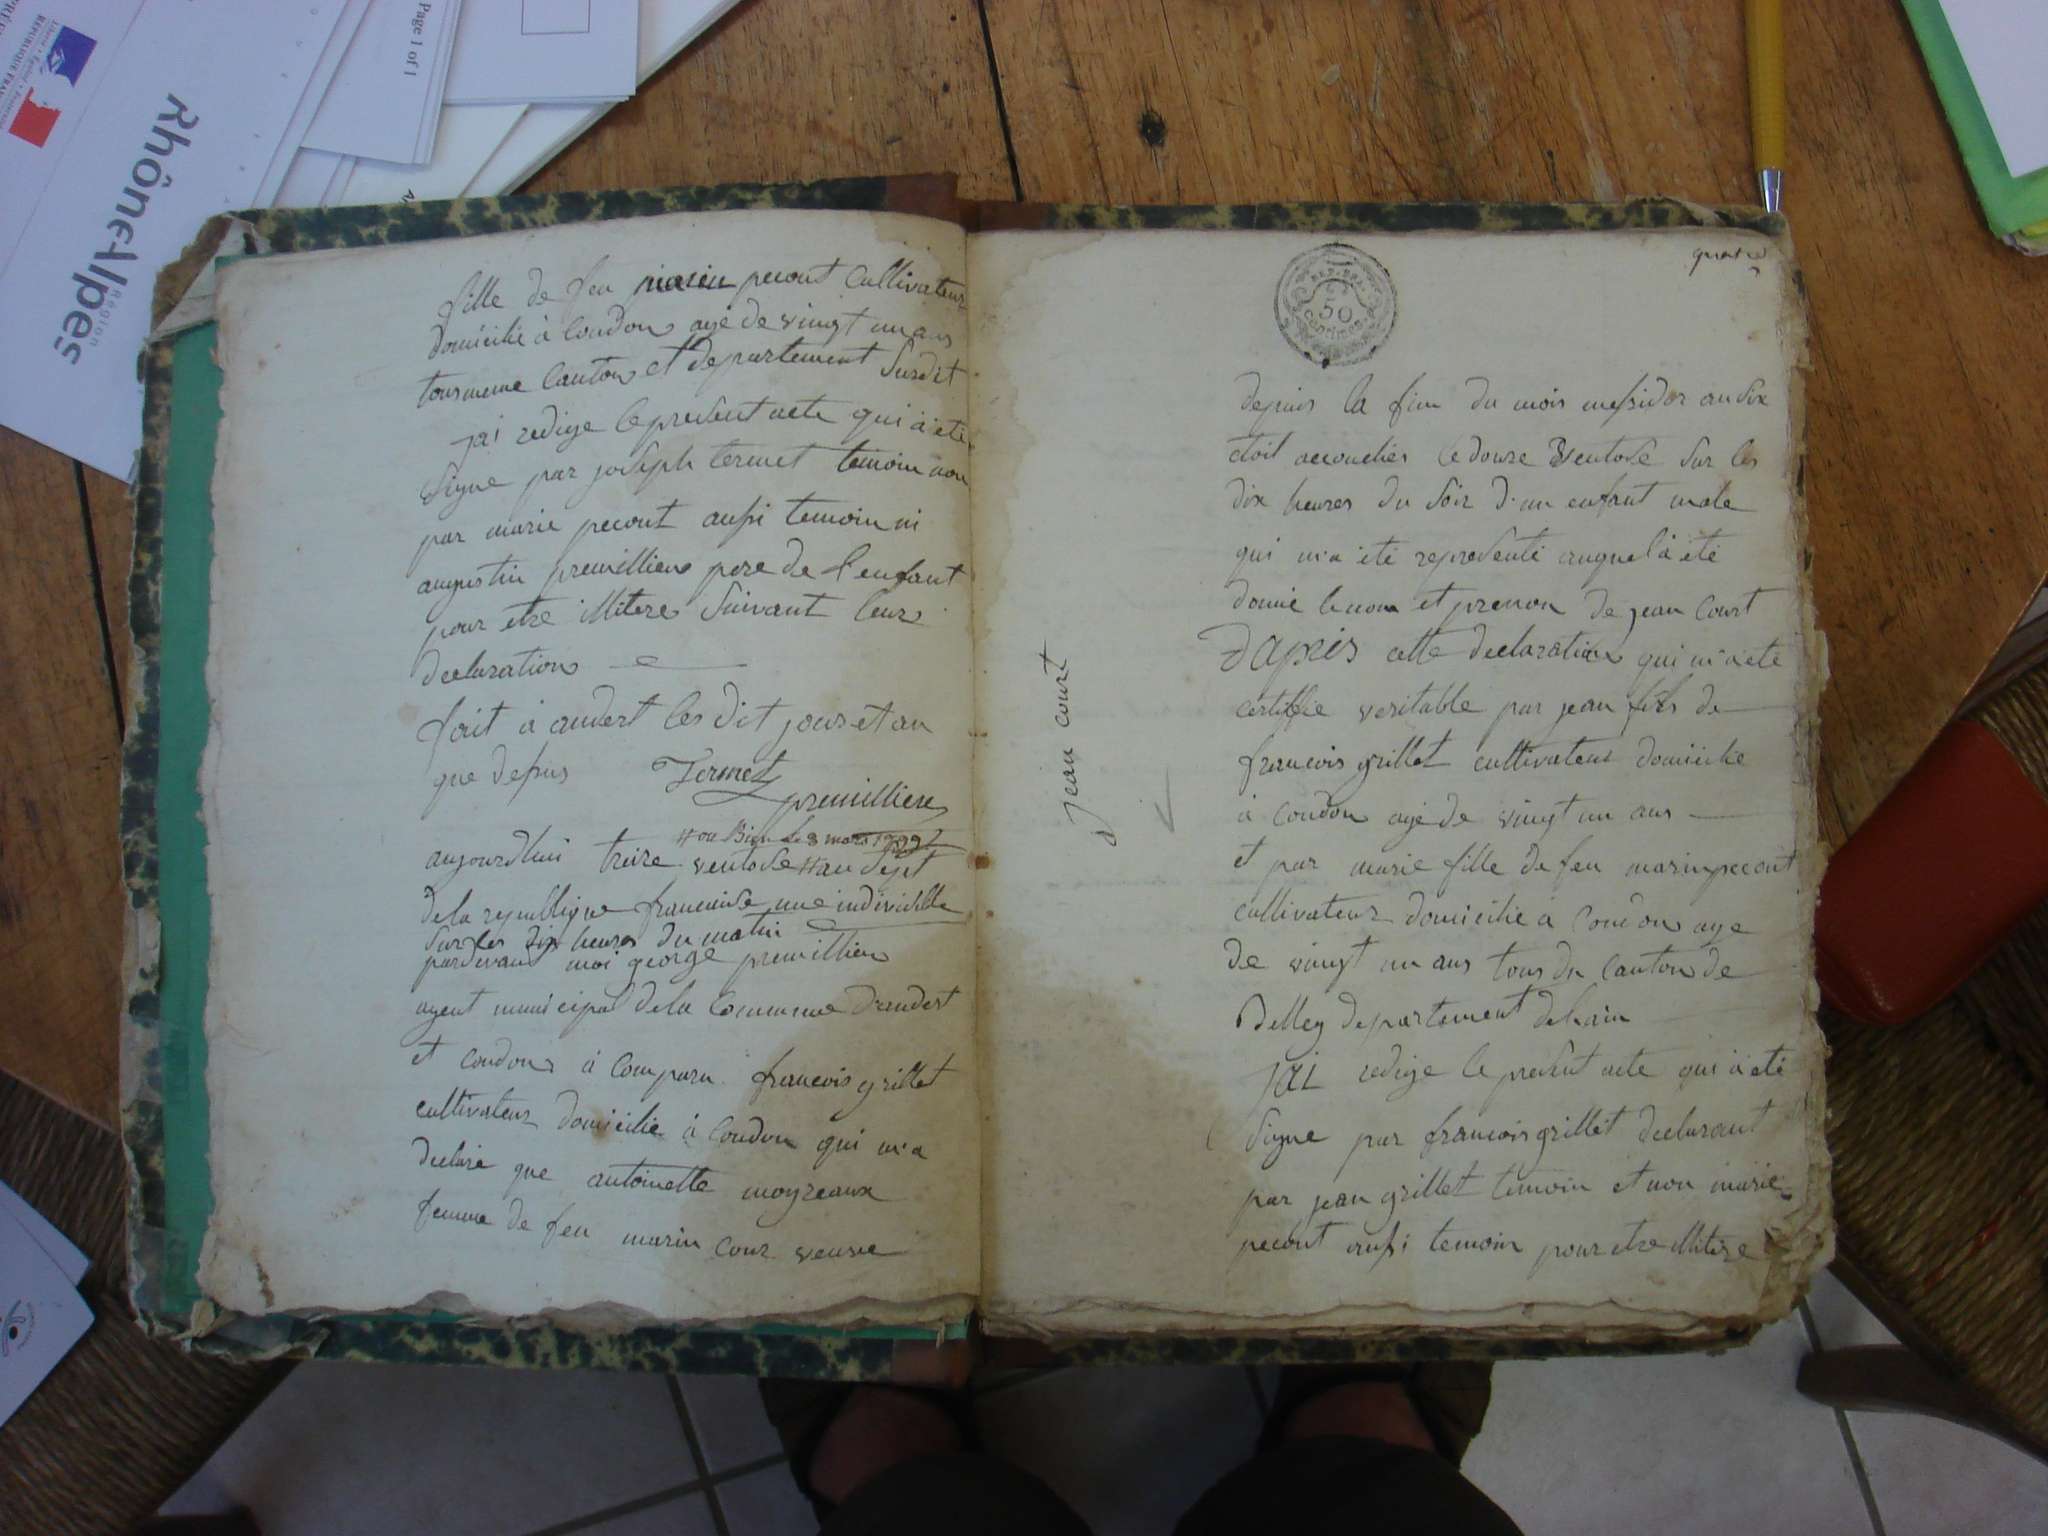 Page 1 of 1
RÉPUBLIQUE FRAN
RhôneAlpes
Région
fille de feu marin pecout cultivateur
domicilie à Coudon agé de vingt un ans
tousmeme Canton et departement Susdit
jai redige le present acte qui à été
signe par joseph termet temoin non
par marie pecout aussi temoin ni
augustin premillieu pere de l'enfant
pour etre illitere suivant leur
declaration
fait à andert les dit jour et an
que depus Termet
premillieu
# ou Bien le 3 mars 1799
aujourdhui treize ventose # an Sept
de la republique francaise une indivisible
sur les dix heures du matin
pardevant moi george premillieu
agent municipal de la Commune dandert
et coudon à comparu francois grillet
cultivateur domicilie à Coudon qui m'a
declaré que antoinette moyreaux
femme de feu marin cour veuve
quatre
REP. FRA.
50
centimes
Jean court
depuis la fin du mois messidor an Six
etoit accouchée le douze Ventose sur les
dix heures du soir d'un enfant male
qui m'a été representé auquel à été
donné le nom et prenon de jean Court
D'apres cette declaration qui m'a été
certifié veritable par jean fils de
francois grillet cultivateur domicilie
à Coudon agé de vingt un ans
et par marie fille de feu marin pecout
cultivateur domicilié à Coudon age
de vingt un ans tous du Canton de
Belley departement de lain
JAI redige le present acte qui à été
Signe par francois grillet declarant
par jean grillet temoin et non marie
pecout aussi temoin pour etre illitere